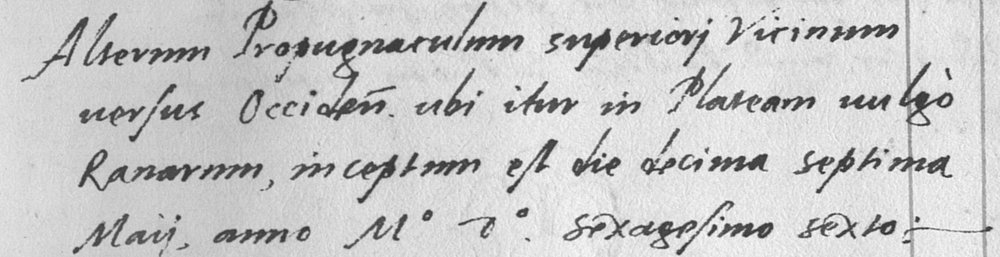 Alterum Propugnaculum superiorj Vicinum
uersus Occideñ. ubi itur in Plateam uulgò
Ranarum, inceptum est die decima septima
Maij, anno M° D°. Sexagesimo sexto: